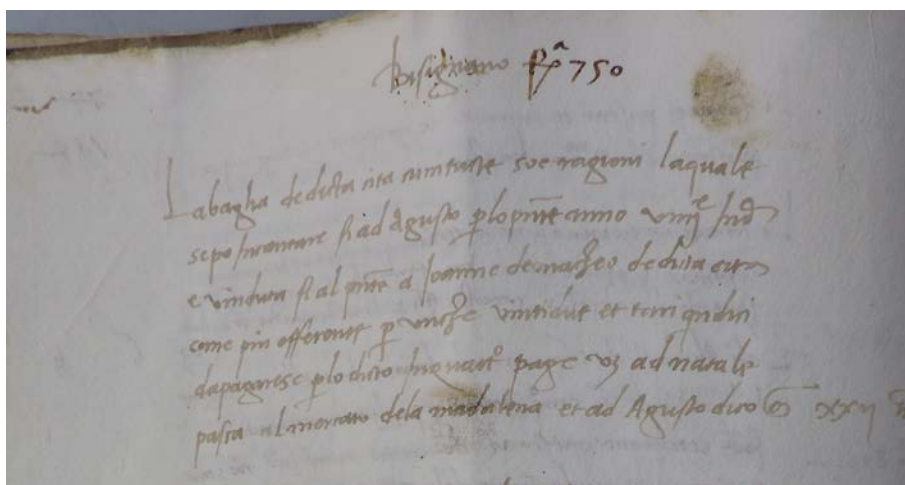 Bisignano fͣ 750
La baglia dedicta cita cum tucte soe ragioni laquale
sepo incantare fi ad Agusto plopnte anno viiijͤ Ind
e vinduta fi al pnte a Joanne demacheo dedicta cita
come piu offerente p unche vintidue et tari qndici
dapagarese plo dicto in quact° page vz ad natale
pasca al mercato dela madalena et ad Agusto dico xxij